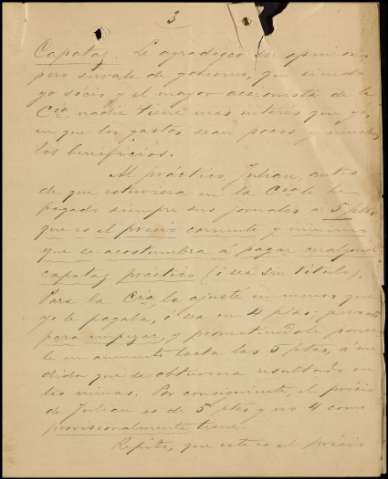 3
Capataz. Le agradezco su opinión,
pero sírvale de gobierno, que siendo
yo sócio y el mayor accionista de la
Cía, nadie tiene más interés que yo,
en que los gastos sean pocos y muchos
los beneficios.
Al práctico, Julian, antes
de que estuviera en la Cía le he
pagado siempre sus jornales a 5 ptas
que es el precio corriente y mínimo
que se acostumbra á pagar cualquier
capataz práctico (ó sea sin título).
Para la Cía, lo ajusté en menos que
yo le pagaba, ó sea en 4 ptas:
para empezar, y prometiendole poner
le en aumento hasta las 5 ptas, á me
dida que se obtuviera resultado en
las minas. Por consiguiente, el precio
de Julian es de 5 ptas y no 4 como
provisionalmente tiene.
Repito, que este es el precio